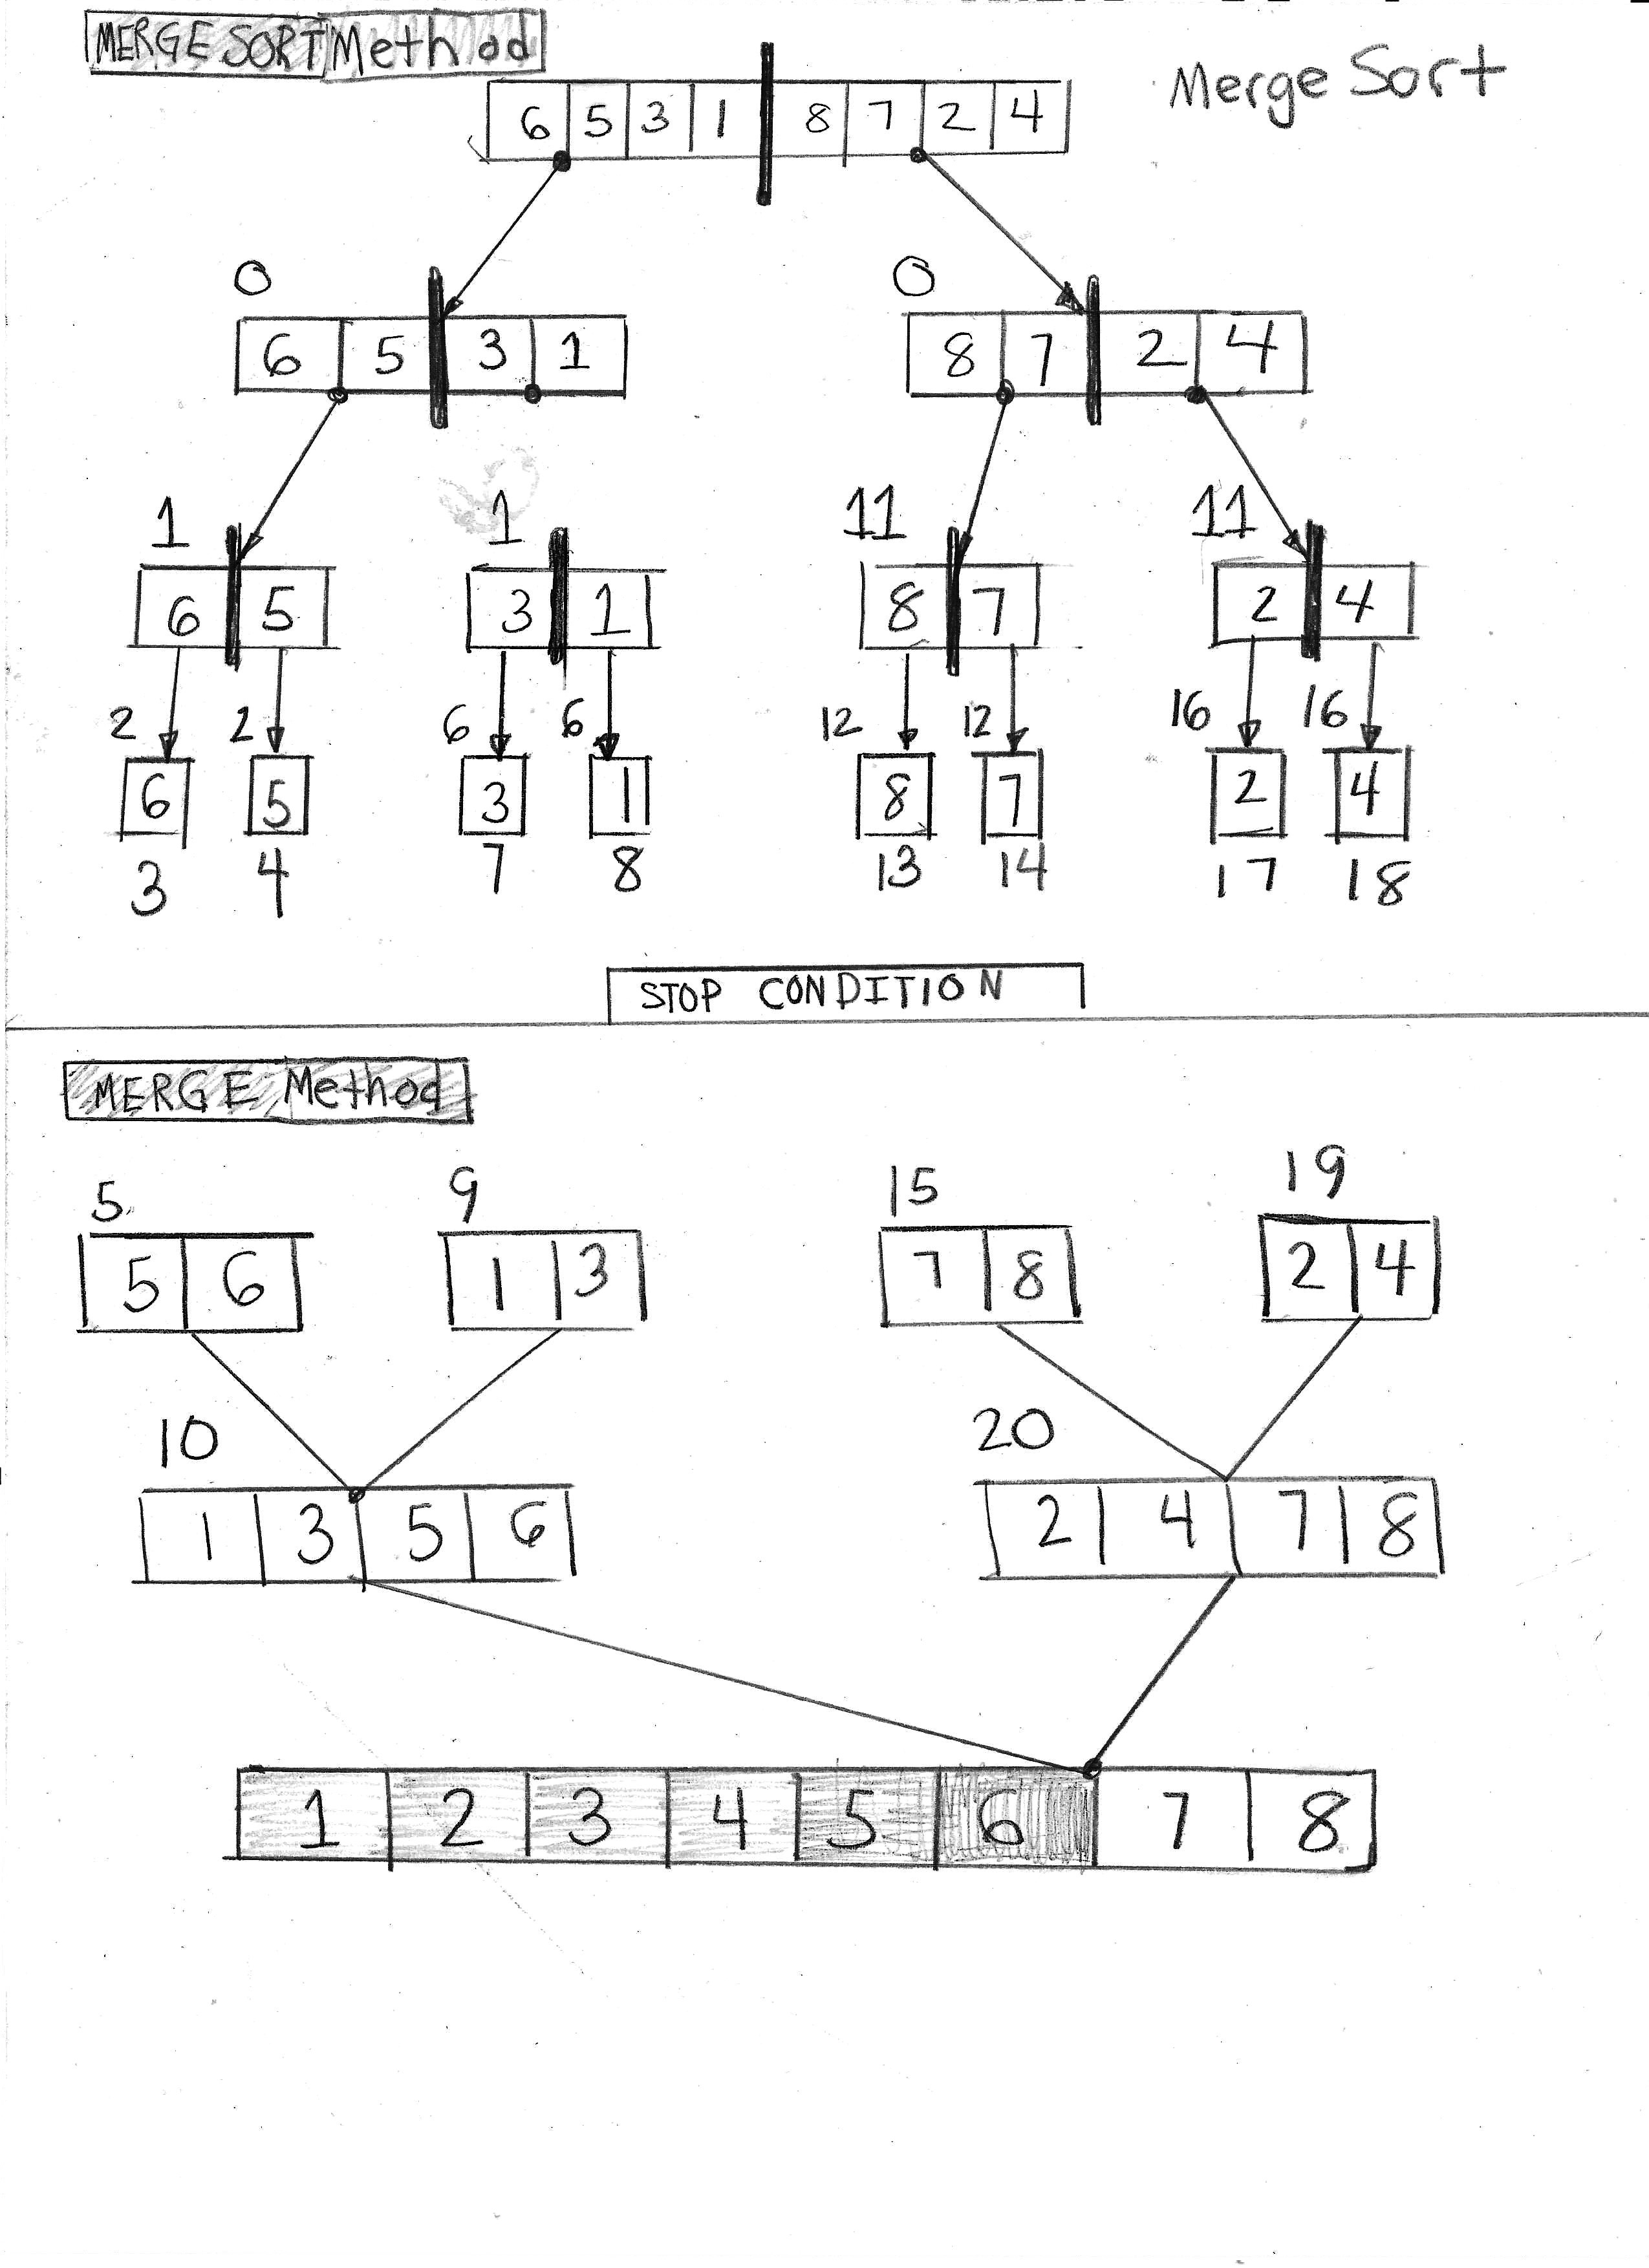 MERGE SORT Method
Merge Sort
6 5 3 1 8 7 2 4
0 0
6 5 3 1 8 7 2 4
1 1 11 11
6 5 3 1 8 7 2 4
2 2 6 6 12 12 16 16
6 5 3 1 8 7 2 4
3 4 7 8 13 14 17 18
STOP CONDITION
MERGE Method
5 9 15 19
5 6 1 3 7 8 2 4
10 20
1 3 5 6 2 4 7 8
1 2 3 4 5 6 7 8